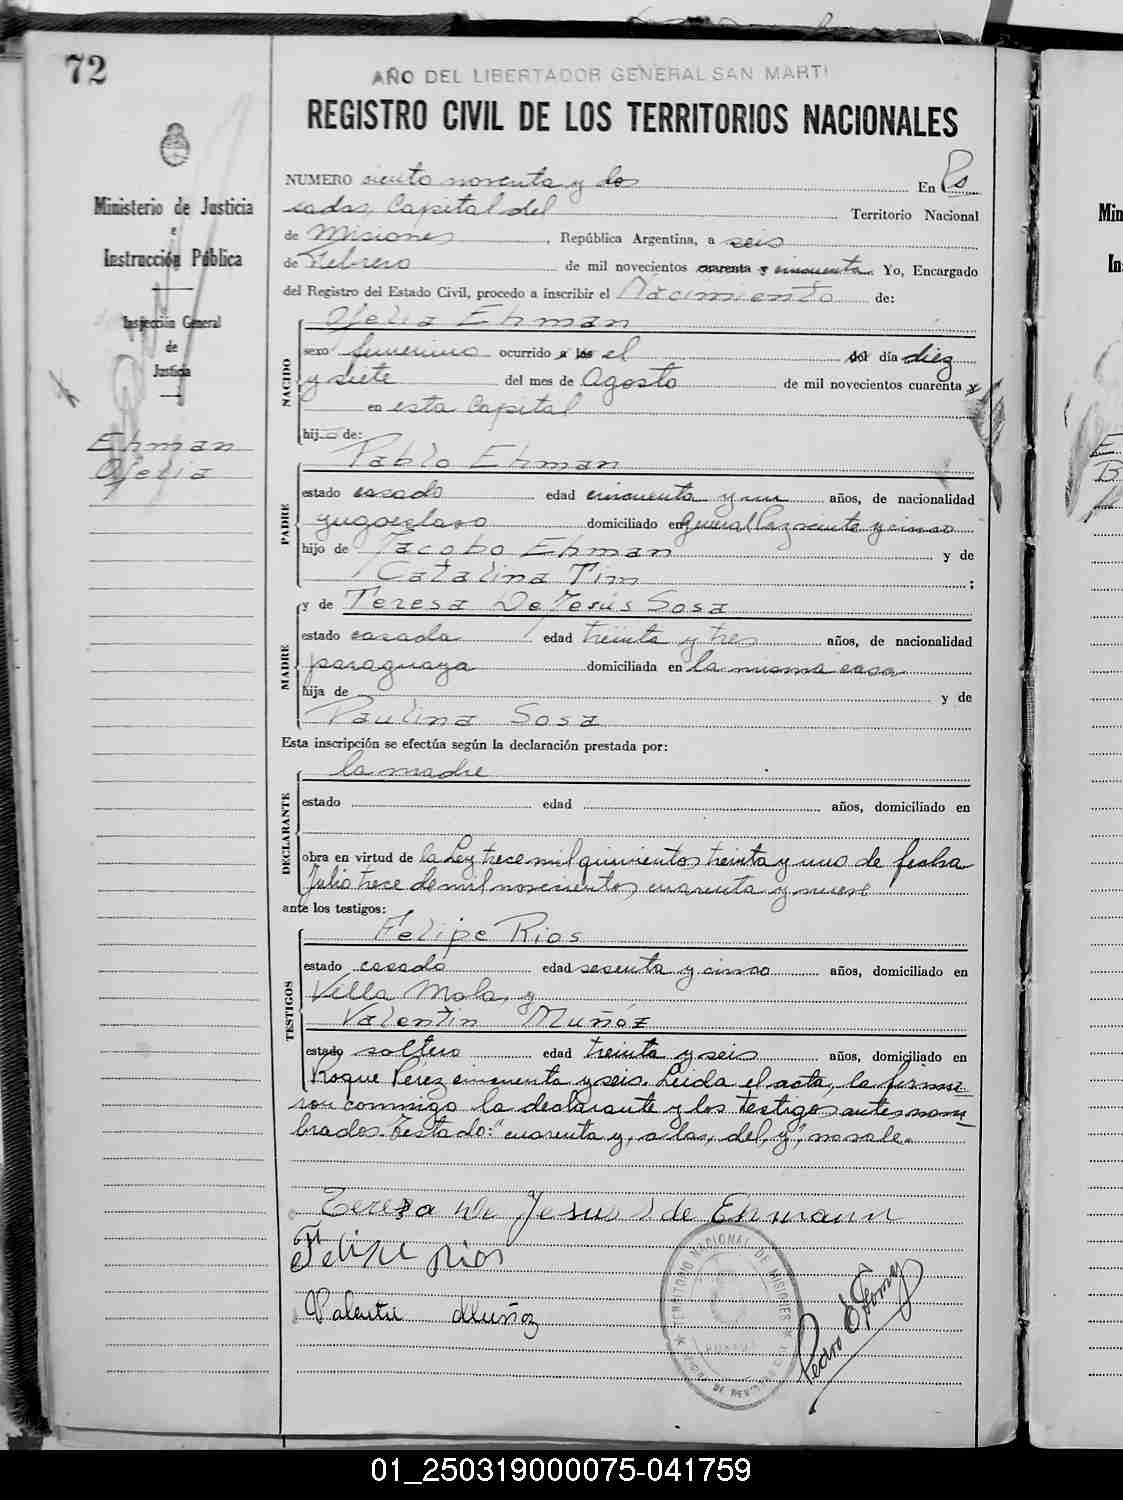 72
AÑO DEL LIBERTADOR GENERAL SAN MARTI
REGISTRO CIVIL DE LOS TERRITORIOS NACIONALES
Ministerio de Justicia
e
Instrucción Pública
Inspección General
de
Justicia
Ehman
Ofelia
NUMERO ciento noventa y dos En Po
sadas, Capital del Territorio Nacional
de Misiones, República Argentina, a seis
de Febrero de mil novecientos cuarenta y cincuenta. Yo, Encargado
del Registro del Estado Civil, procedo a inscribir el Nacimiento de:
NACIDO
Ofelia Ehman
sexo femenino ocurrido a las el del día diez
y siete del mes de Agosto de mil novecientos cuarenta y
en esta Capital
hij de:
PADRE
Pablo Ehman
estado casado edad cincuenta y un años, de nacionalidad
yugoeslavo domiciliado en General Paz sesenta y cinco
hijo de Jacobo Ehman y de
Catalina Tim ;
MADRE
y de Teresa De Jesús Sosa
estado casada edad treinta y tres años, de nacionalidad
paraguaya domiciliada en la misma casa
hija de y de
Paulina Sosa
Esta inscripción se efectúa según la declaración prestada por:
DECLARANTE
la madre
estado edad años, domiciliado en
obra en virtud de la Ley trece mil quinientos treinta y uno de fecha
Julio trece de mil novecientos cuarenta y nueve
ante los testigos:
TESTIGOS
Felipe Rios
estado casado edad sesenta y cinco años, domiciliado en
Villa Mola, y
Valentin Muñoz
estado soltero edad treinta y seis años, domiciliado en
Roque Pérez cincuenta y seis. Leida el acta, la firma
ron conmigo la declarante y los testigos antes nom
brados. Testado: "cuarenta y, a las, del, y", no vale.
Tereza de Jesus S de Ehmann
Felipe Rios
Valentin Muñoz
TERRITORIO NACIONAL DE MISIONES
Pedro E
01_250319000075-041759